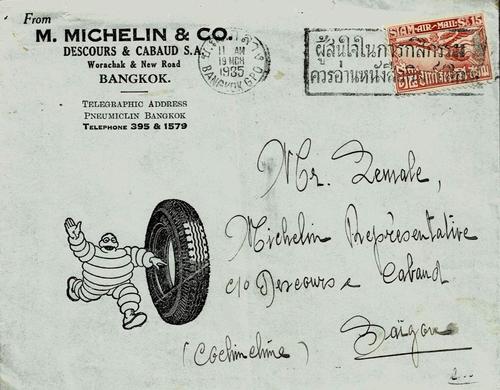 From
M. MICHELIN & CO.
DESCOURS & CABAUD S.A.
Worachak & New Road
BANGKOK.
TELEGRAPHIC ADDRESS
PNEUMICLIN BANGKOK
TELEPHONE 395 & 1579
11 AM
19 MCH
1935
BANGKOK G.P.O.
ผู้สนใจในการกสิกรรม
ควรอ่านหนังสือ
SIAM-AIR-MAIL-S.15
Mr. Lemale,
Michelin Représentative
c/o Descours & Cabaud
Saïgon
(Cochinchine)